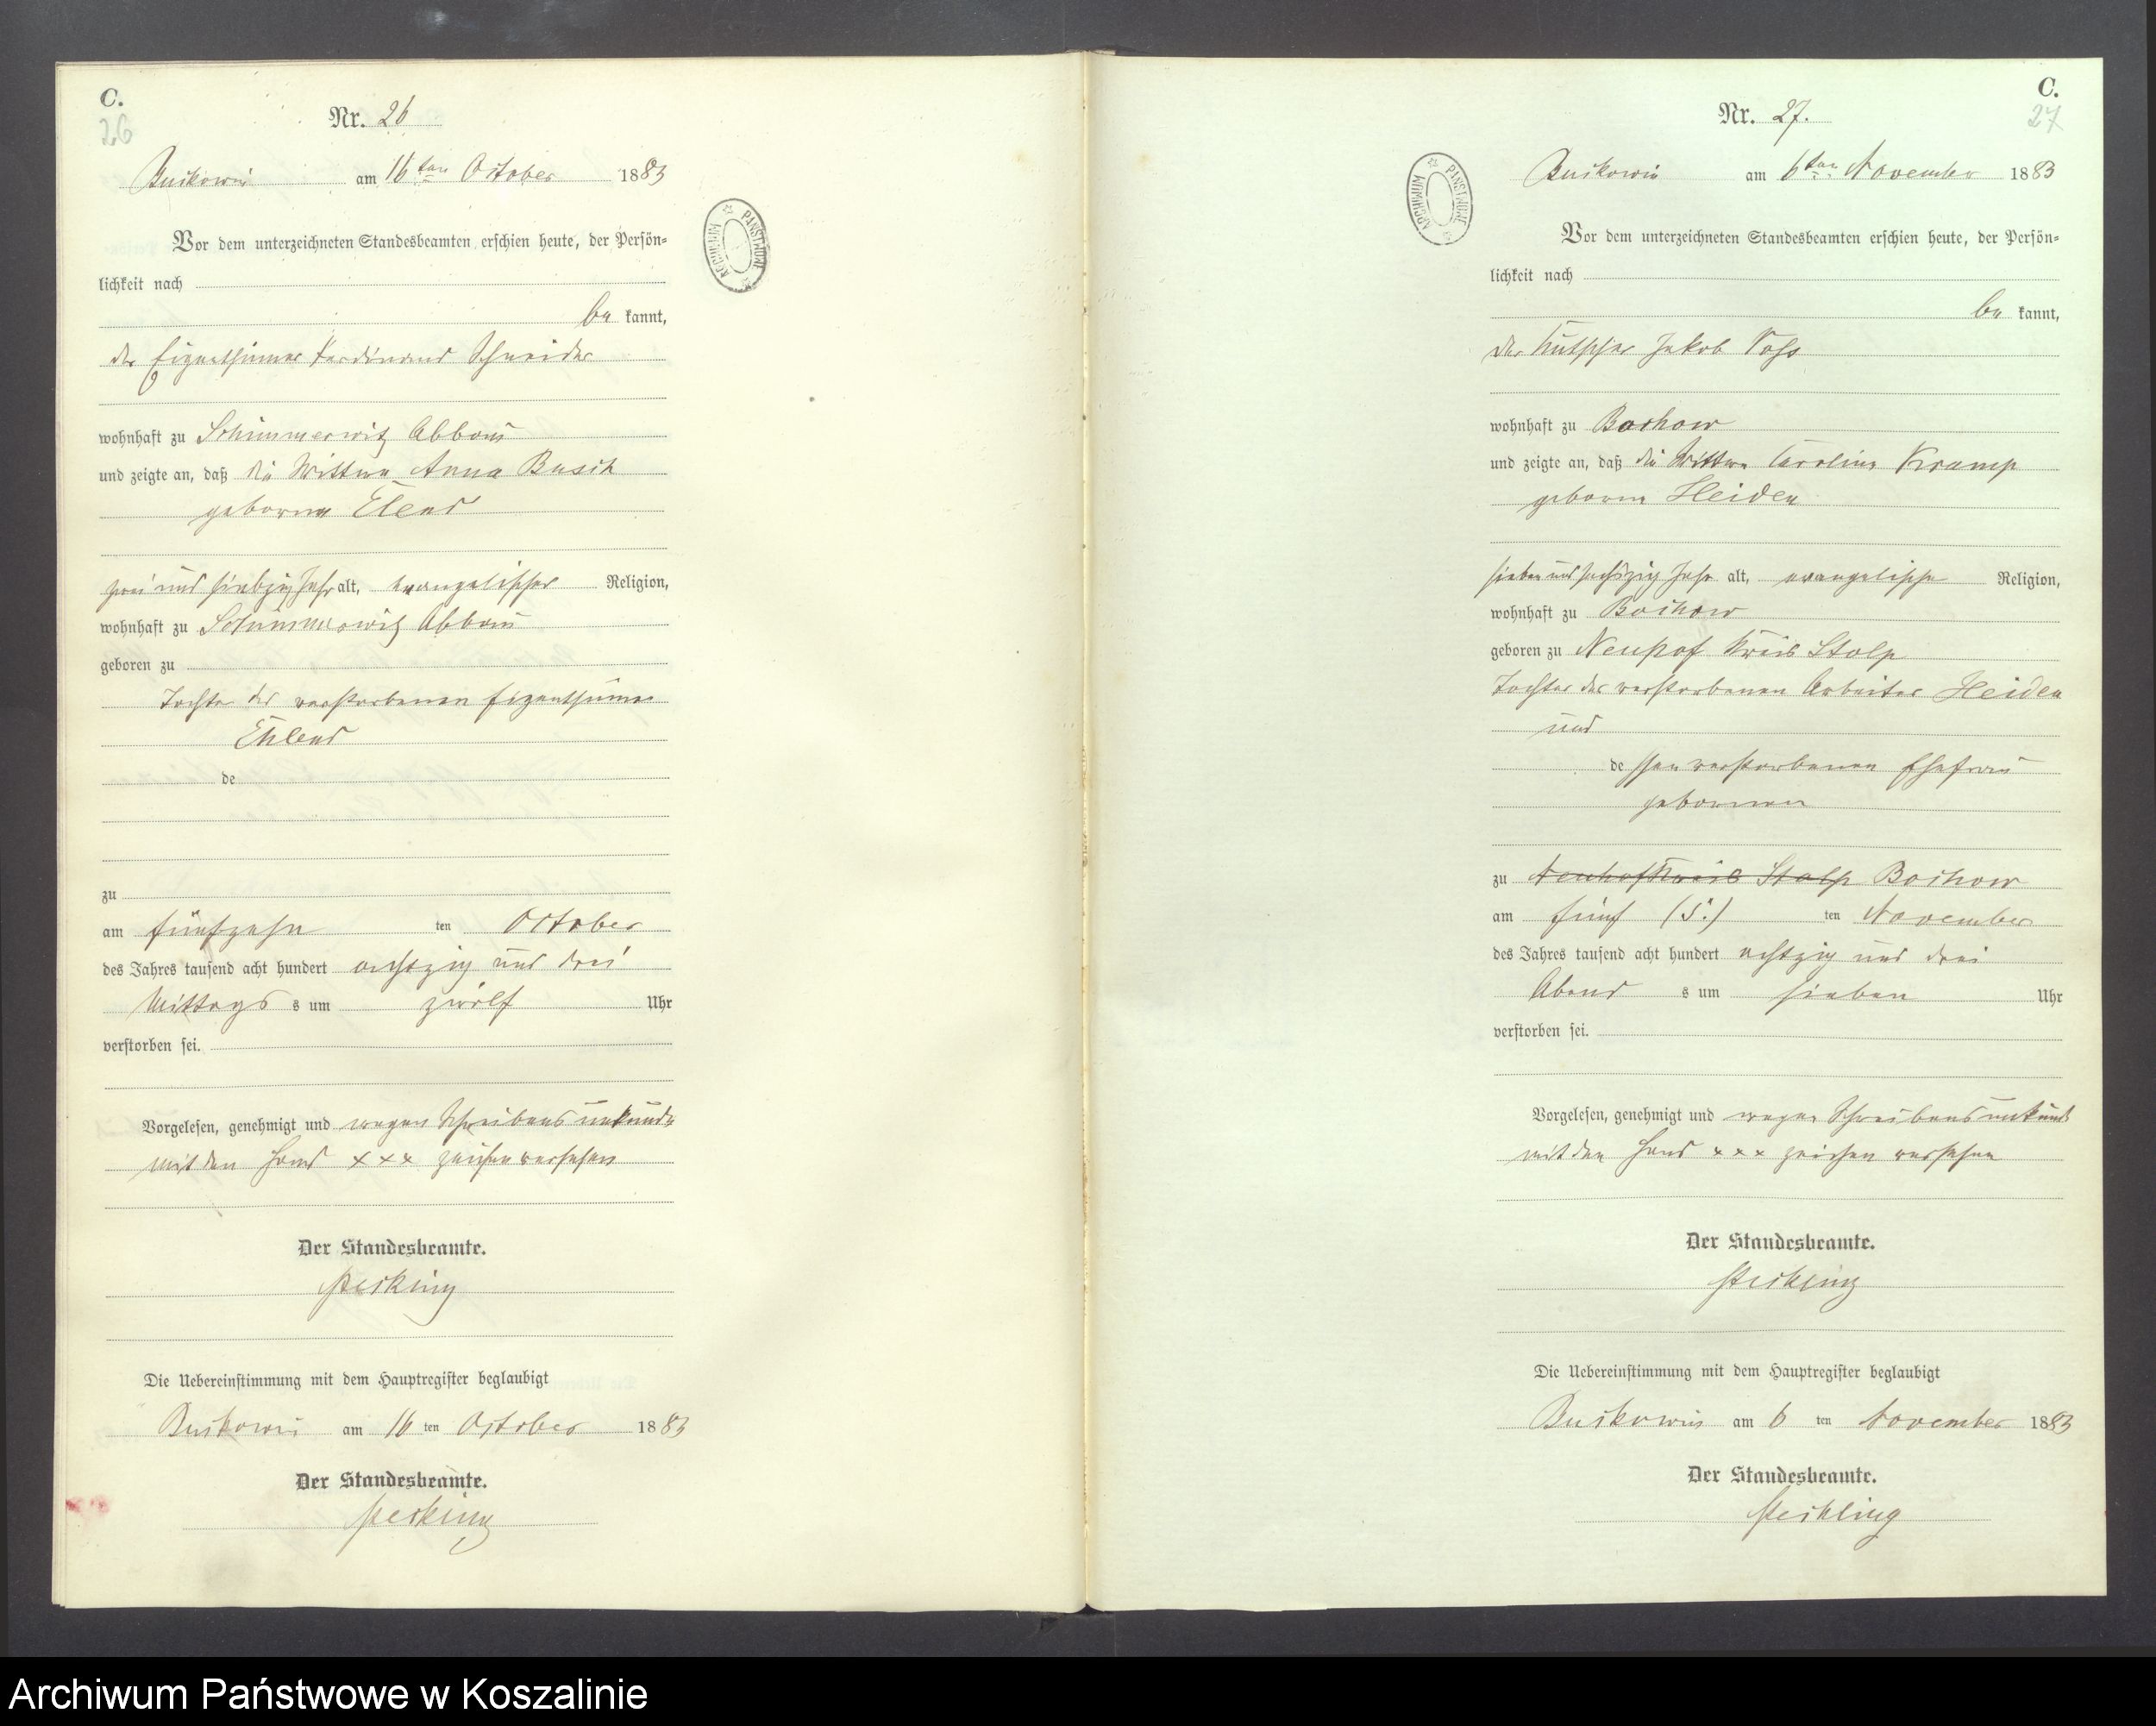 C.
26
Nr. 26
Buckowin am 16 ten October 1883
Vor dem unterzeichneten Standesbeamten erschien heute, der Persön-
lichkeit nach
be kannt,
der Eigenthümer Ferdinand Schneider
wohnhaft zu Schimmerwitz Abbau
und zeigte an, daß die Wittwe Anna Busch
geborne Elend
zwei und siebzig Jahr alt, evangelischer Religion,
wohnhaft zu Schimmerwitz Abbau
geboren zu
Tochter des verstorbenen Eigenthümer
Ehlend
de
zu
am fünfzehn ten October
des Jahres tausend acht hundert achtzig und drei
Mittags s um zwölf Uhr
verstorben sei.
Vorgelesen, genehmigt und wegen Schreibens unkunde
mit den Hand xxx zeichen versehen
Der Standesbeamte.
Die Uebereinstimmung mit dem Hauptregister beglaubigt
Buckowin am 16 ten October 1883
Der Standesbeamte.
ARCHIWUM PAŃSTWOWE
C.
27
Nr. 27.
Buckowin am 6 ten November 1883
Vor dem unterzeichneten Standesbeamten erschien heute, der Persön-
lichkeit nach
be kannt,
der Kutscher Jakob Voss
wohnhaft zu Bochow
und zeigte an, daß die Wittwe Caroline Kramp
geborne Heiden
sieben und sechszig Jahr alt, evangelische Religion,
wohnhaft zu Bochow
geboren zu Neuhof Kreis Stolp
Tochter des verstorbenen Arbeiter Heiden
und
de ssen verstorbenen Ehefrau
gebornen
zu Neuhof Kreis Stolp Bochow
am fünf (5.) ten November
des Jahres tausend acht hundert achtzig und drei
Abend s um sieben Uhr
verstorben sei.
Vorgelesen, genehmigt und wegen Schreibens unkund
mit den Hand xxx zeichen versehen
Der Standesbeamte.
Die Uebereinstimmung mit dem Hauptregister beglaubigt
Buckowin am 6 ten November 1883
Der Standesbeamte.
ARCHIWUM PAŃSTWOWE
Archiwum Państwowe w Koszalinie